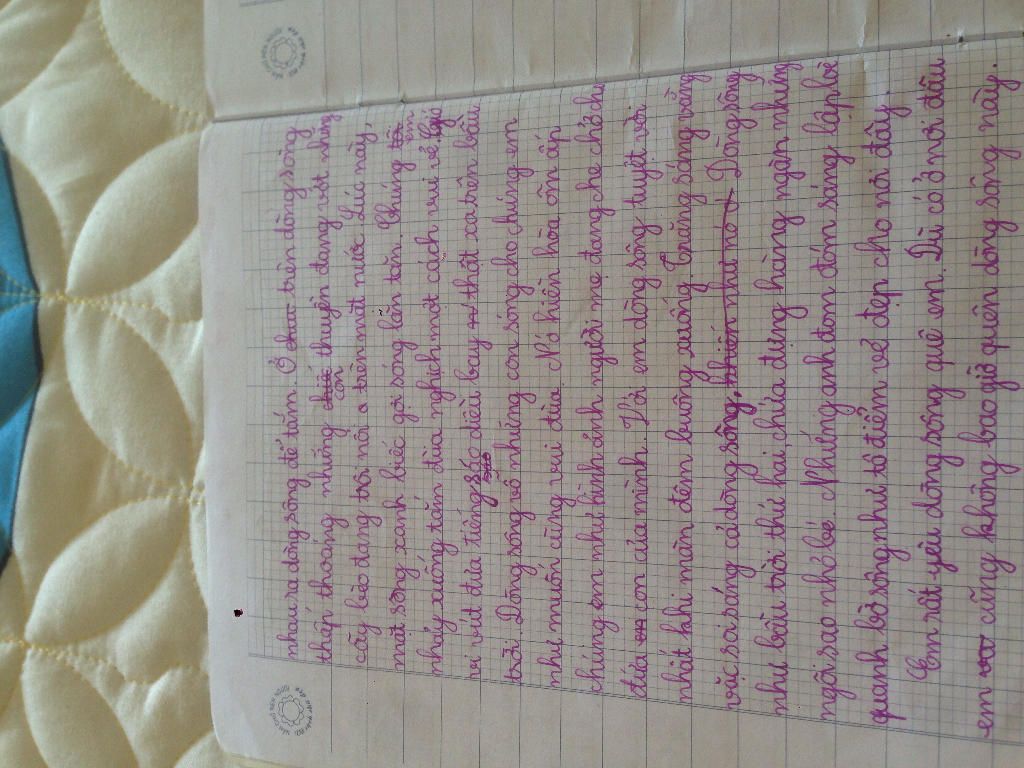 nhau ra dòng sông để tắm. Ở chưa trên dòng sông
thấp thoáng những chiếc con thuyền đang vớt những
cây bèo đang trôi nổi ở trên mặt nước. Lúc này,
mặt sông xanh biếc gợi sóng lăn tăn. Chúng tôi em
nhảy xuống tắm đùa nghịch một cách vui vẻ
vi vút đưa tiếng sáo diều bay thật xa trên bầu
trời. Dòng sông vỗ những con sóng cho chúng em
như muốn cùng vui đùa. Nó hiền hòa ôm ấp
chúng em như hình ảnh người mẹ đang che chở cho
đứa con của mình. Với em dòng sông tuyệt vời
nhất khi màn đêm buông xuống. Trăng sáng vằng
vặc soi sáng cả dòng sông, khiến như nó Dòng sông
như bầu trời thứ hai chứa đựng hàng ngàn những
ngôi sao nhỏ bé. Những ánh đom đóm sáng lập lòe
quanh bờ sông như tô điểm vẻ đẹp cho nơi đây.
Em rất yêu dòng sông quê em. Dù có ở nơi đâu
em cũng không bao giờ quên dòng sông này.